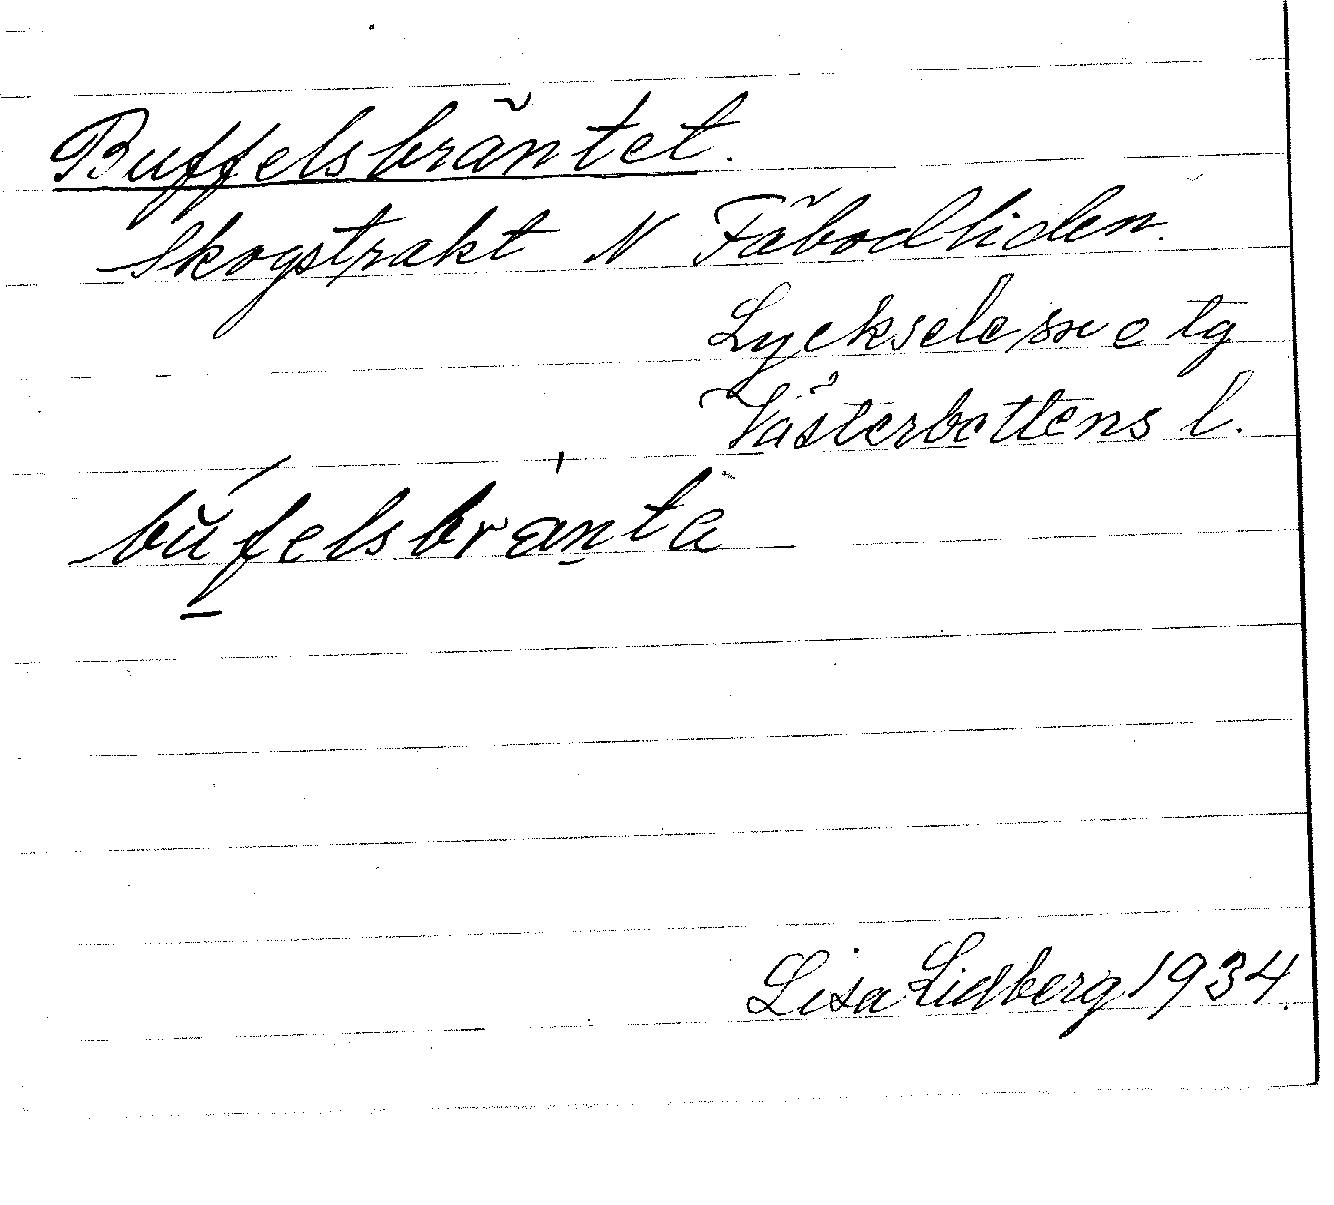 Buffelsbräntet.
Skogstrakt N Fäbodliden.
Lycksele sn o tg
Västerbottens l.
bùfelsbrànta
Lisa Lidberg 1934.